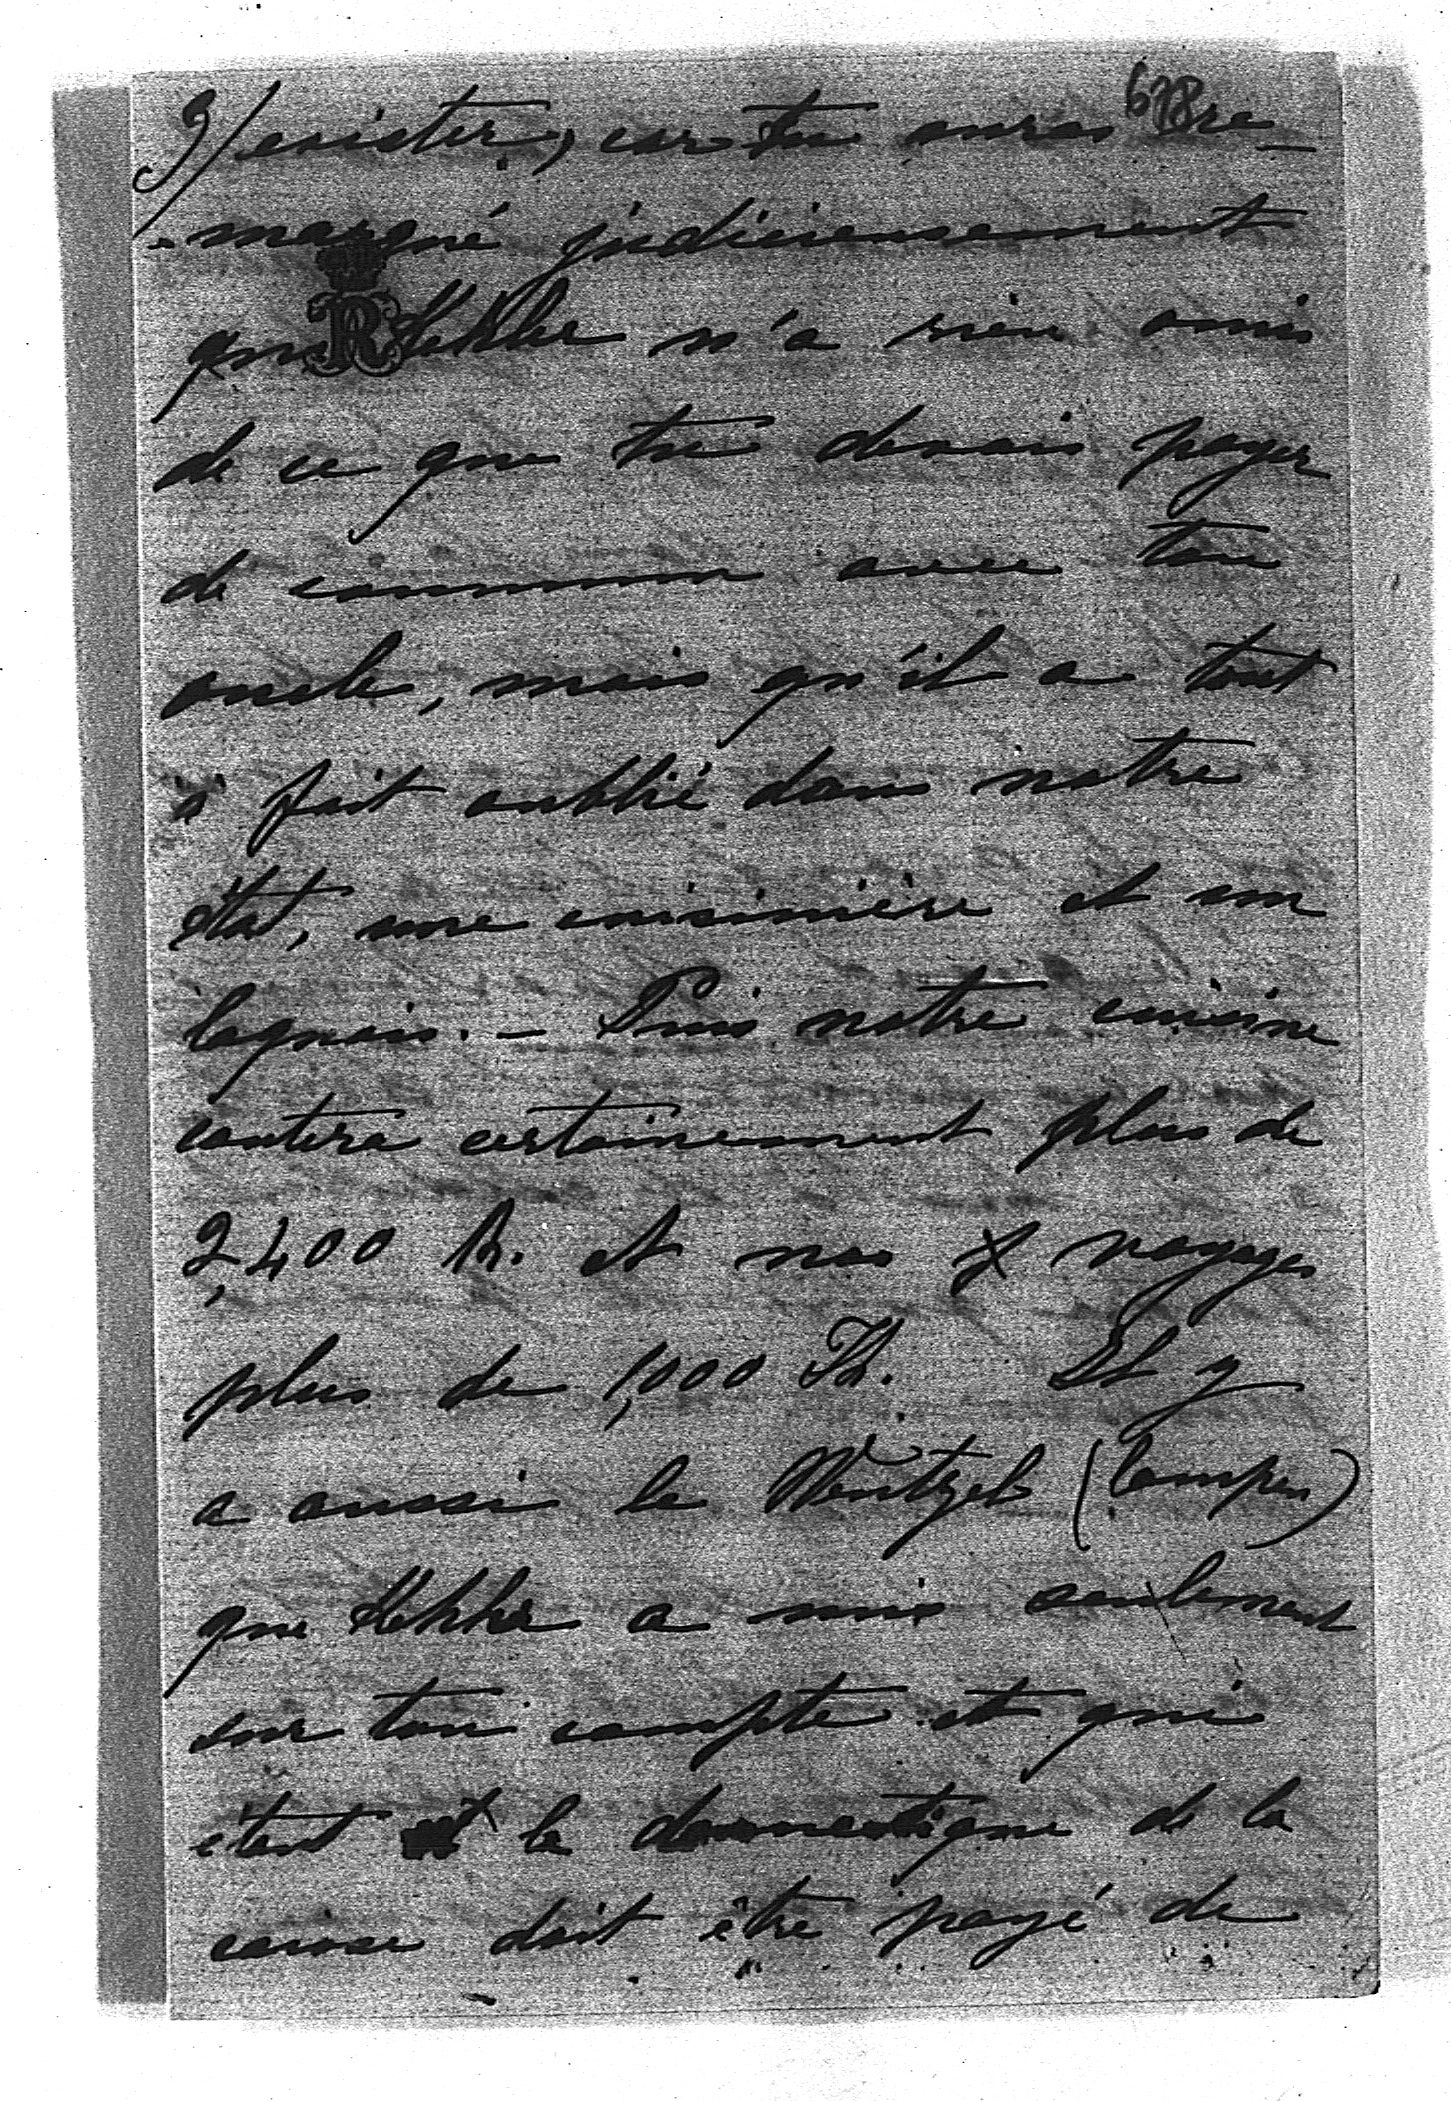 678
9/ exister, car tu auras re-
-marqué judicieusement
que Kekler n'a rien omis
de ce que tu devais payer
de commun avec ton
oncle, mais qu'il a tout
à fait oublié dans notre
état, une cuisinière et un
laquais. - Puis notre cuisine
coutera certainement plus de
2,400 R. et nos voyages
plus de 1,000 Th. Et y
a aussi le Wentzel (Compen)
que Kekler a mis seulement
sur ton compte et qui
étant le domestique de la
caisse doit être payé de